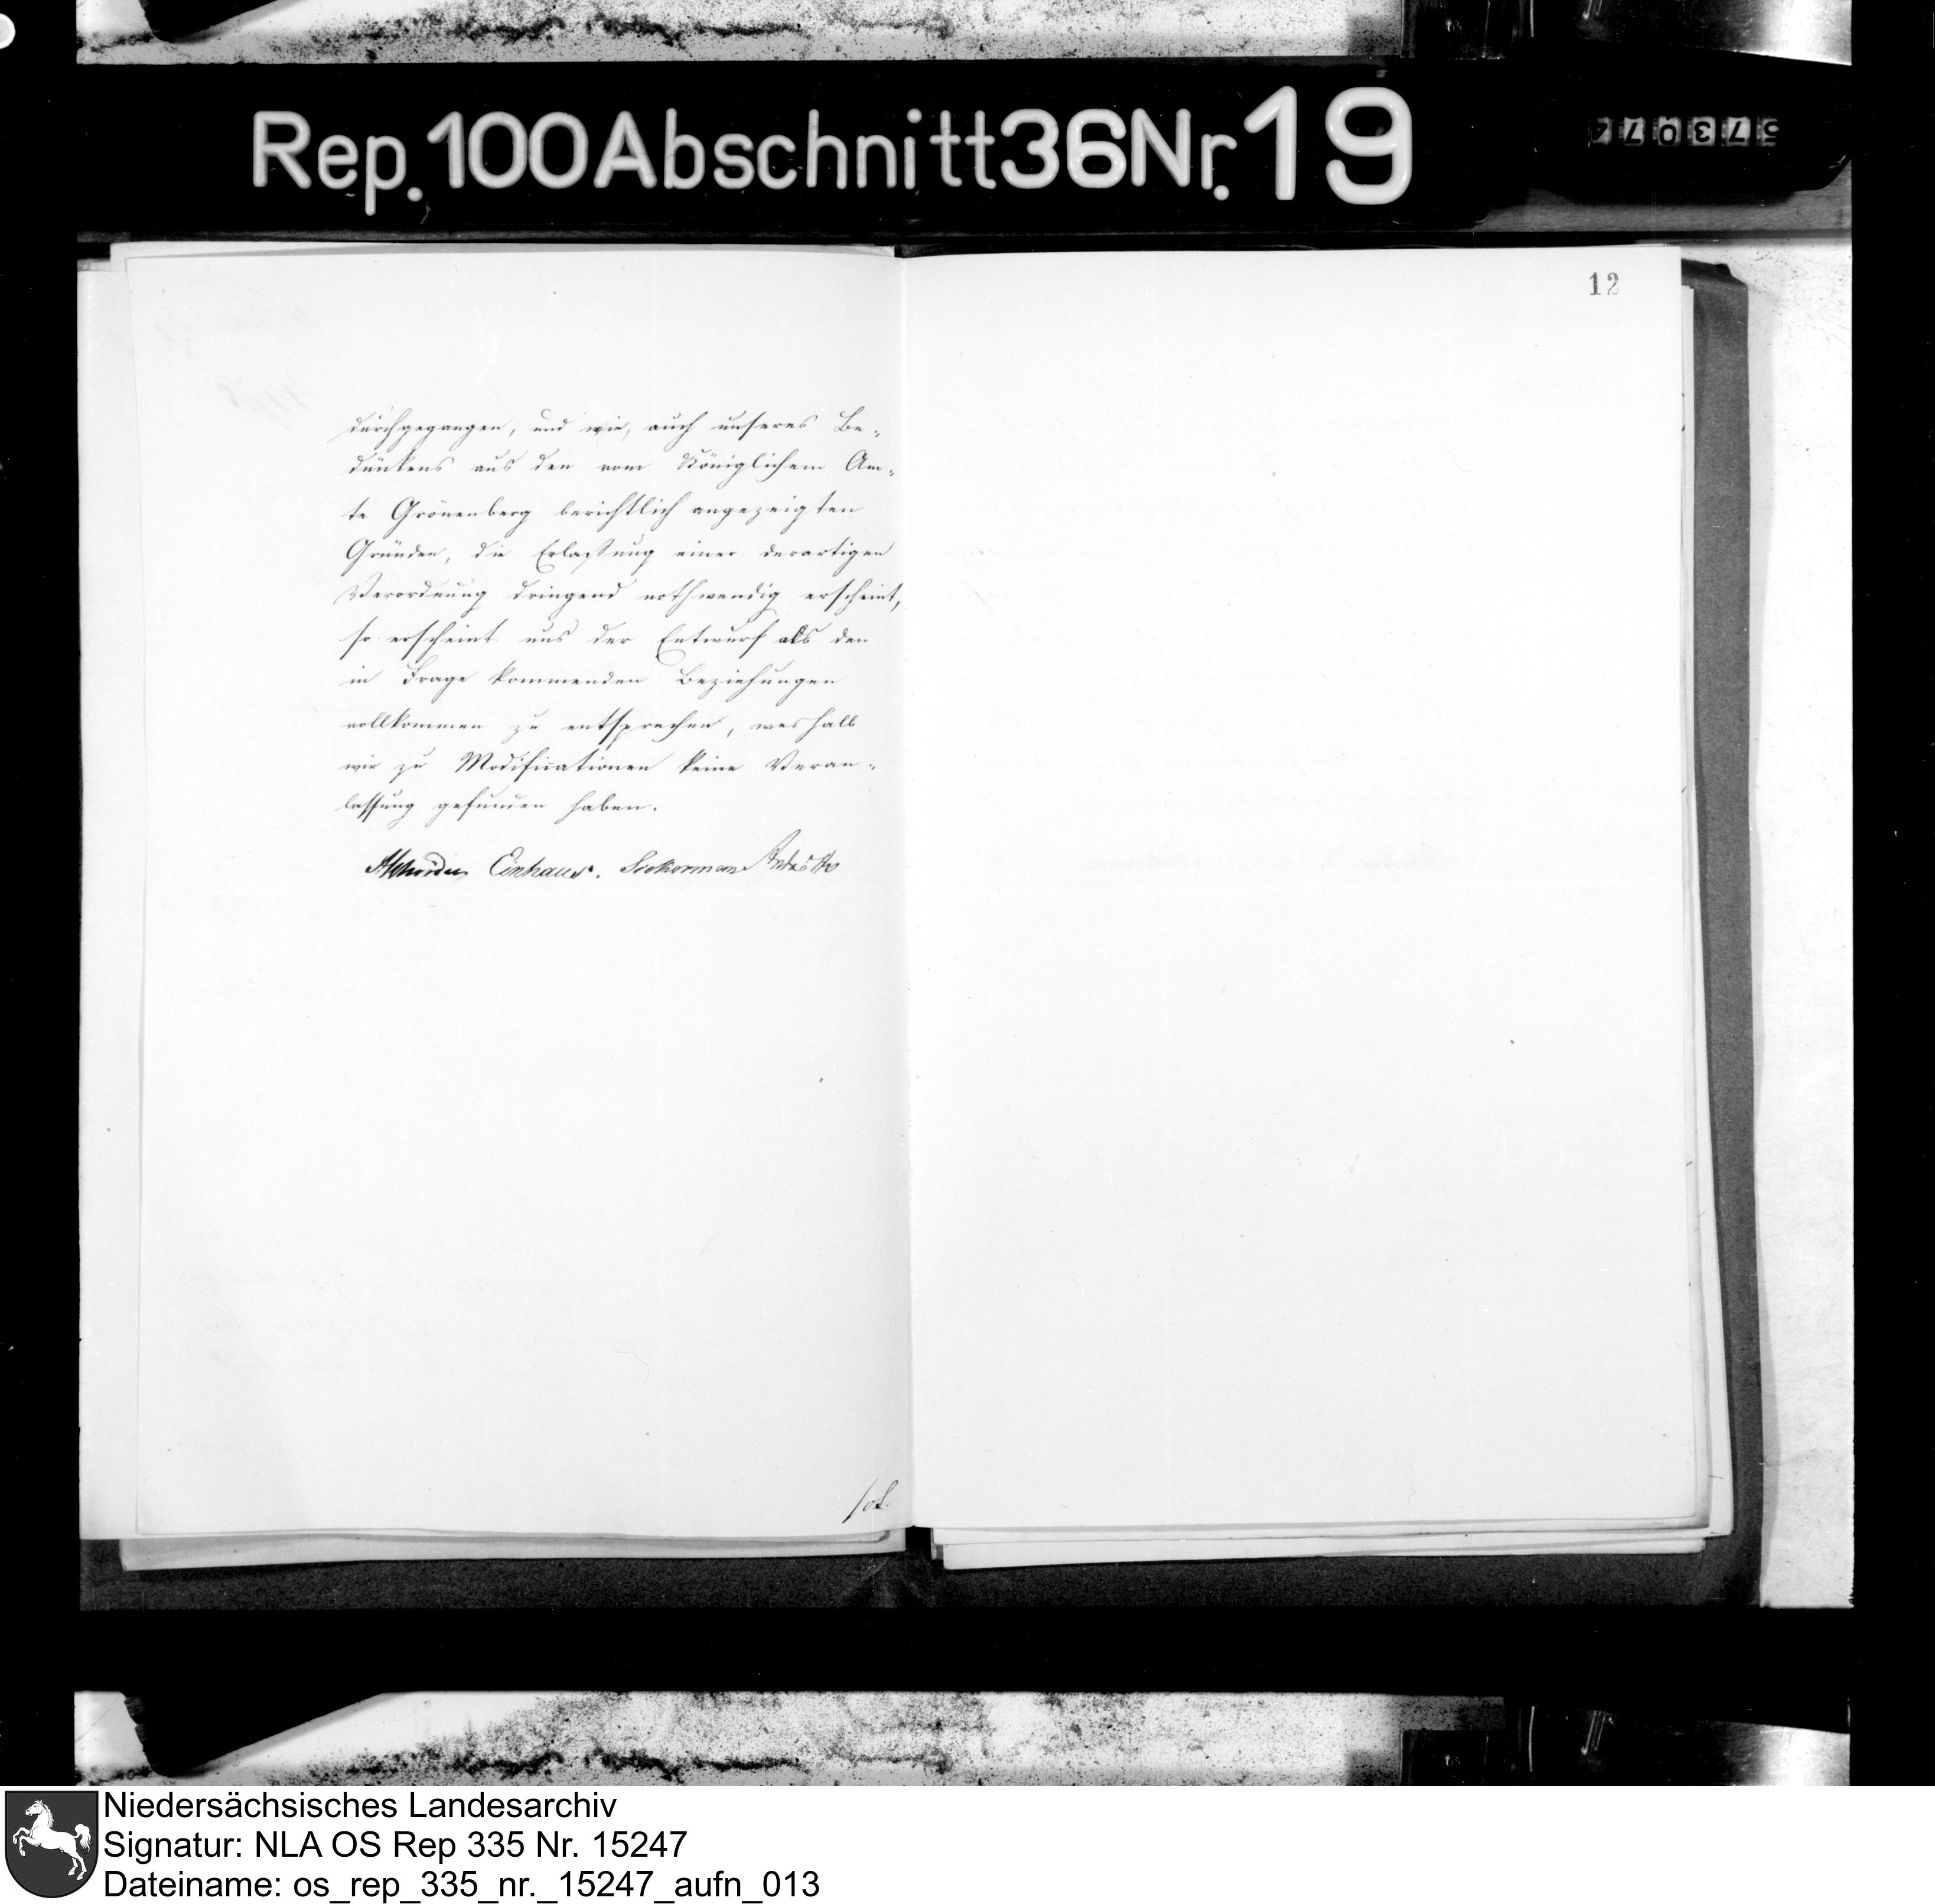 Rep. 100 Abschnitt 36 Nr. 19
573074
12
durchgegangen, und wie, auch unseres Be-
dünkens aus den vom Königlichem Am-
te Grönenberg berichtlich angezeigten
Gründen, die Erlaßung einer derartigen
Verordnung dringend nothwendig erscheint,
so erscheint uns der Entwurf als den
in Frage kommenden Beziehungen
vollkommen zu entsprechen, weshalb
wir zu Modificationen keine Veran-
lassung gefunden haben.
Einhaus.
Niedersächsisches Landesarchiv
Signatur: NLA OS Rep 335 Nr. 15247
Dateiname: os_rep_335_nr._15247_aufn_013